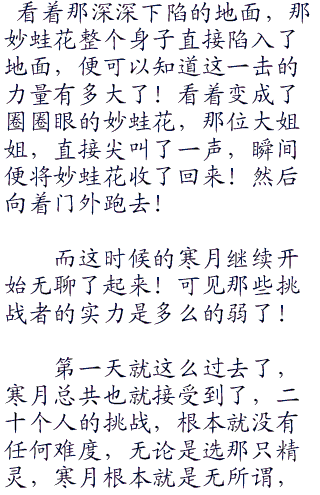 看着那深深下陷的地面，那
妙蛙花整个身子直接陷入了
地面，便可以知道这一击的
力量有多大了！看着变成了
圈圈眼的妙蛙花，那位大姐
姐，直接尖叫了一声，瞬间
便将妙蛙花收了回来！然后
向着门外跑去！
而这时候的寒月继续开
始无聊了起来！可见那些挑
战者的实力是多么的弱了！
第一天就这么过去了，
寒月总共也就接受到了，二
十个人的挑战，根本就没有
任何难度，无论是选那只精
灵，寒月根本就是无所谓，